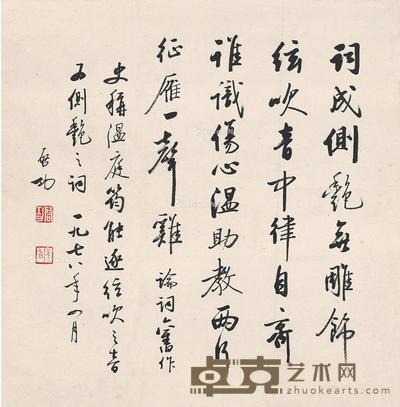 词成侧艳无雕饰
弦吹音中律自齐
谁识伤心温助教两行
征雁一声鸡 论词之旧作
史称温庭筠能逐弦吹之音
为侧艳之词 一九七八年四月
启功
卓克艺术网
www.zhuokearts.com